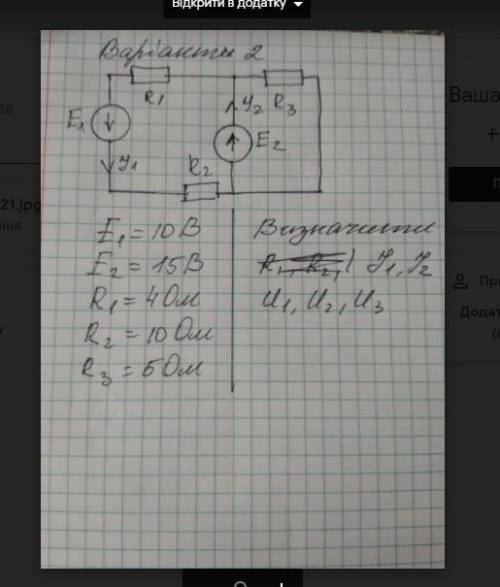 Відкрити в додатку
Варіанти 2
R1
R3
E1
I1
I2
E2
R2
E1 = 10 В
E2 = 15 В
R1 = 4 Ом
R2 = 10 Ом
R3 = 5 Ом
Визначити
R1, R2, I1, I2
U1, U2, U3
Ваша
38
21.jpg
ння
Про
Додат